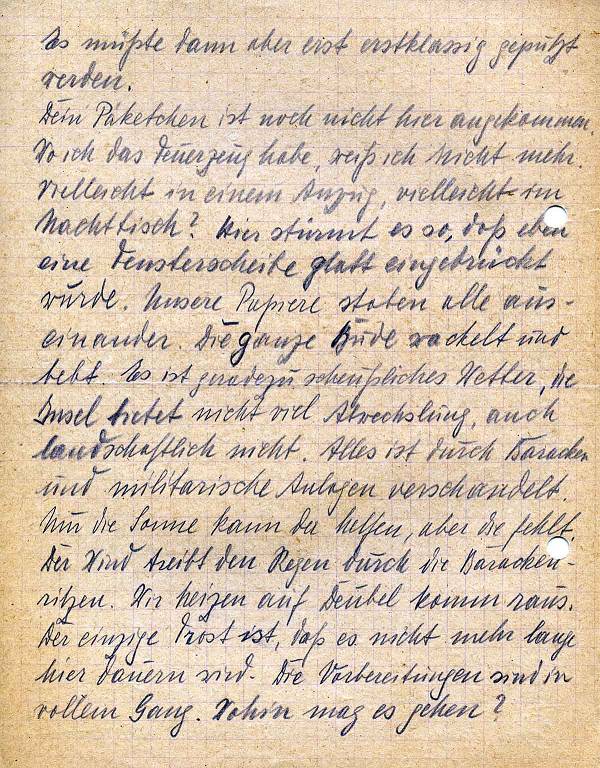 Es müßte dann aber erst erstklassig geputzt
werden.
Dein Päketchen ist noch nicht hier angekommen.
Wo ich das Feuerzeug habe, weiß ich nicht mehr.
Vielleicht in einem Anzug, vielleicht im
Nachttisch? Hier stürmt es so, daß eben
eine Fensterscheibe glatt eingedrückt
wurde. Unsere Papiere stoben alle aus-
einander. Die ganze Bude wackelt und
bebt. Es ist geradezu scheußliches Wetter, die
Insel bietet nicht viel Abwechslung, auch
landschaftlich nicht. Alles ist durch Baracken
und militärische Anlagen verschandelt.
Nur die Sonne kann da helfen, aber die fehlt.
Der Wind treibt den Regen durch die Baracken-
ritzen. Wir heizen auf Deubel komm raus.
Der einzige Trost ist, daß es nicht mehr lange
hier dauern wird. Die Vorbereitungen sind in
vollem Gang. Wohin mag es gehen?